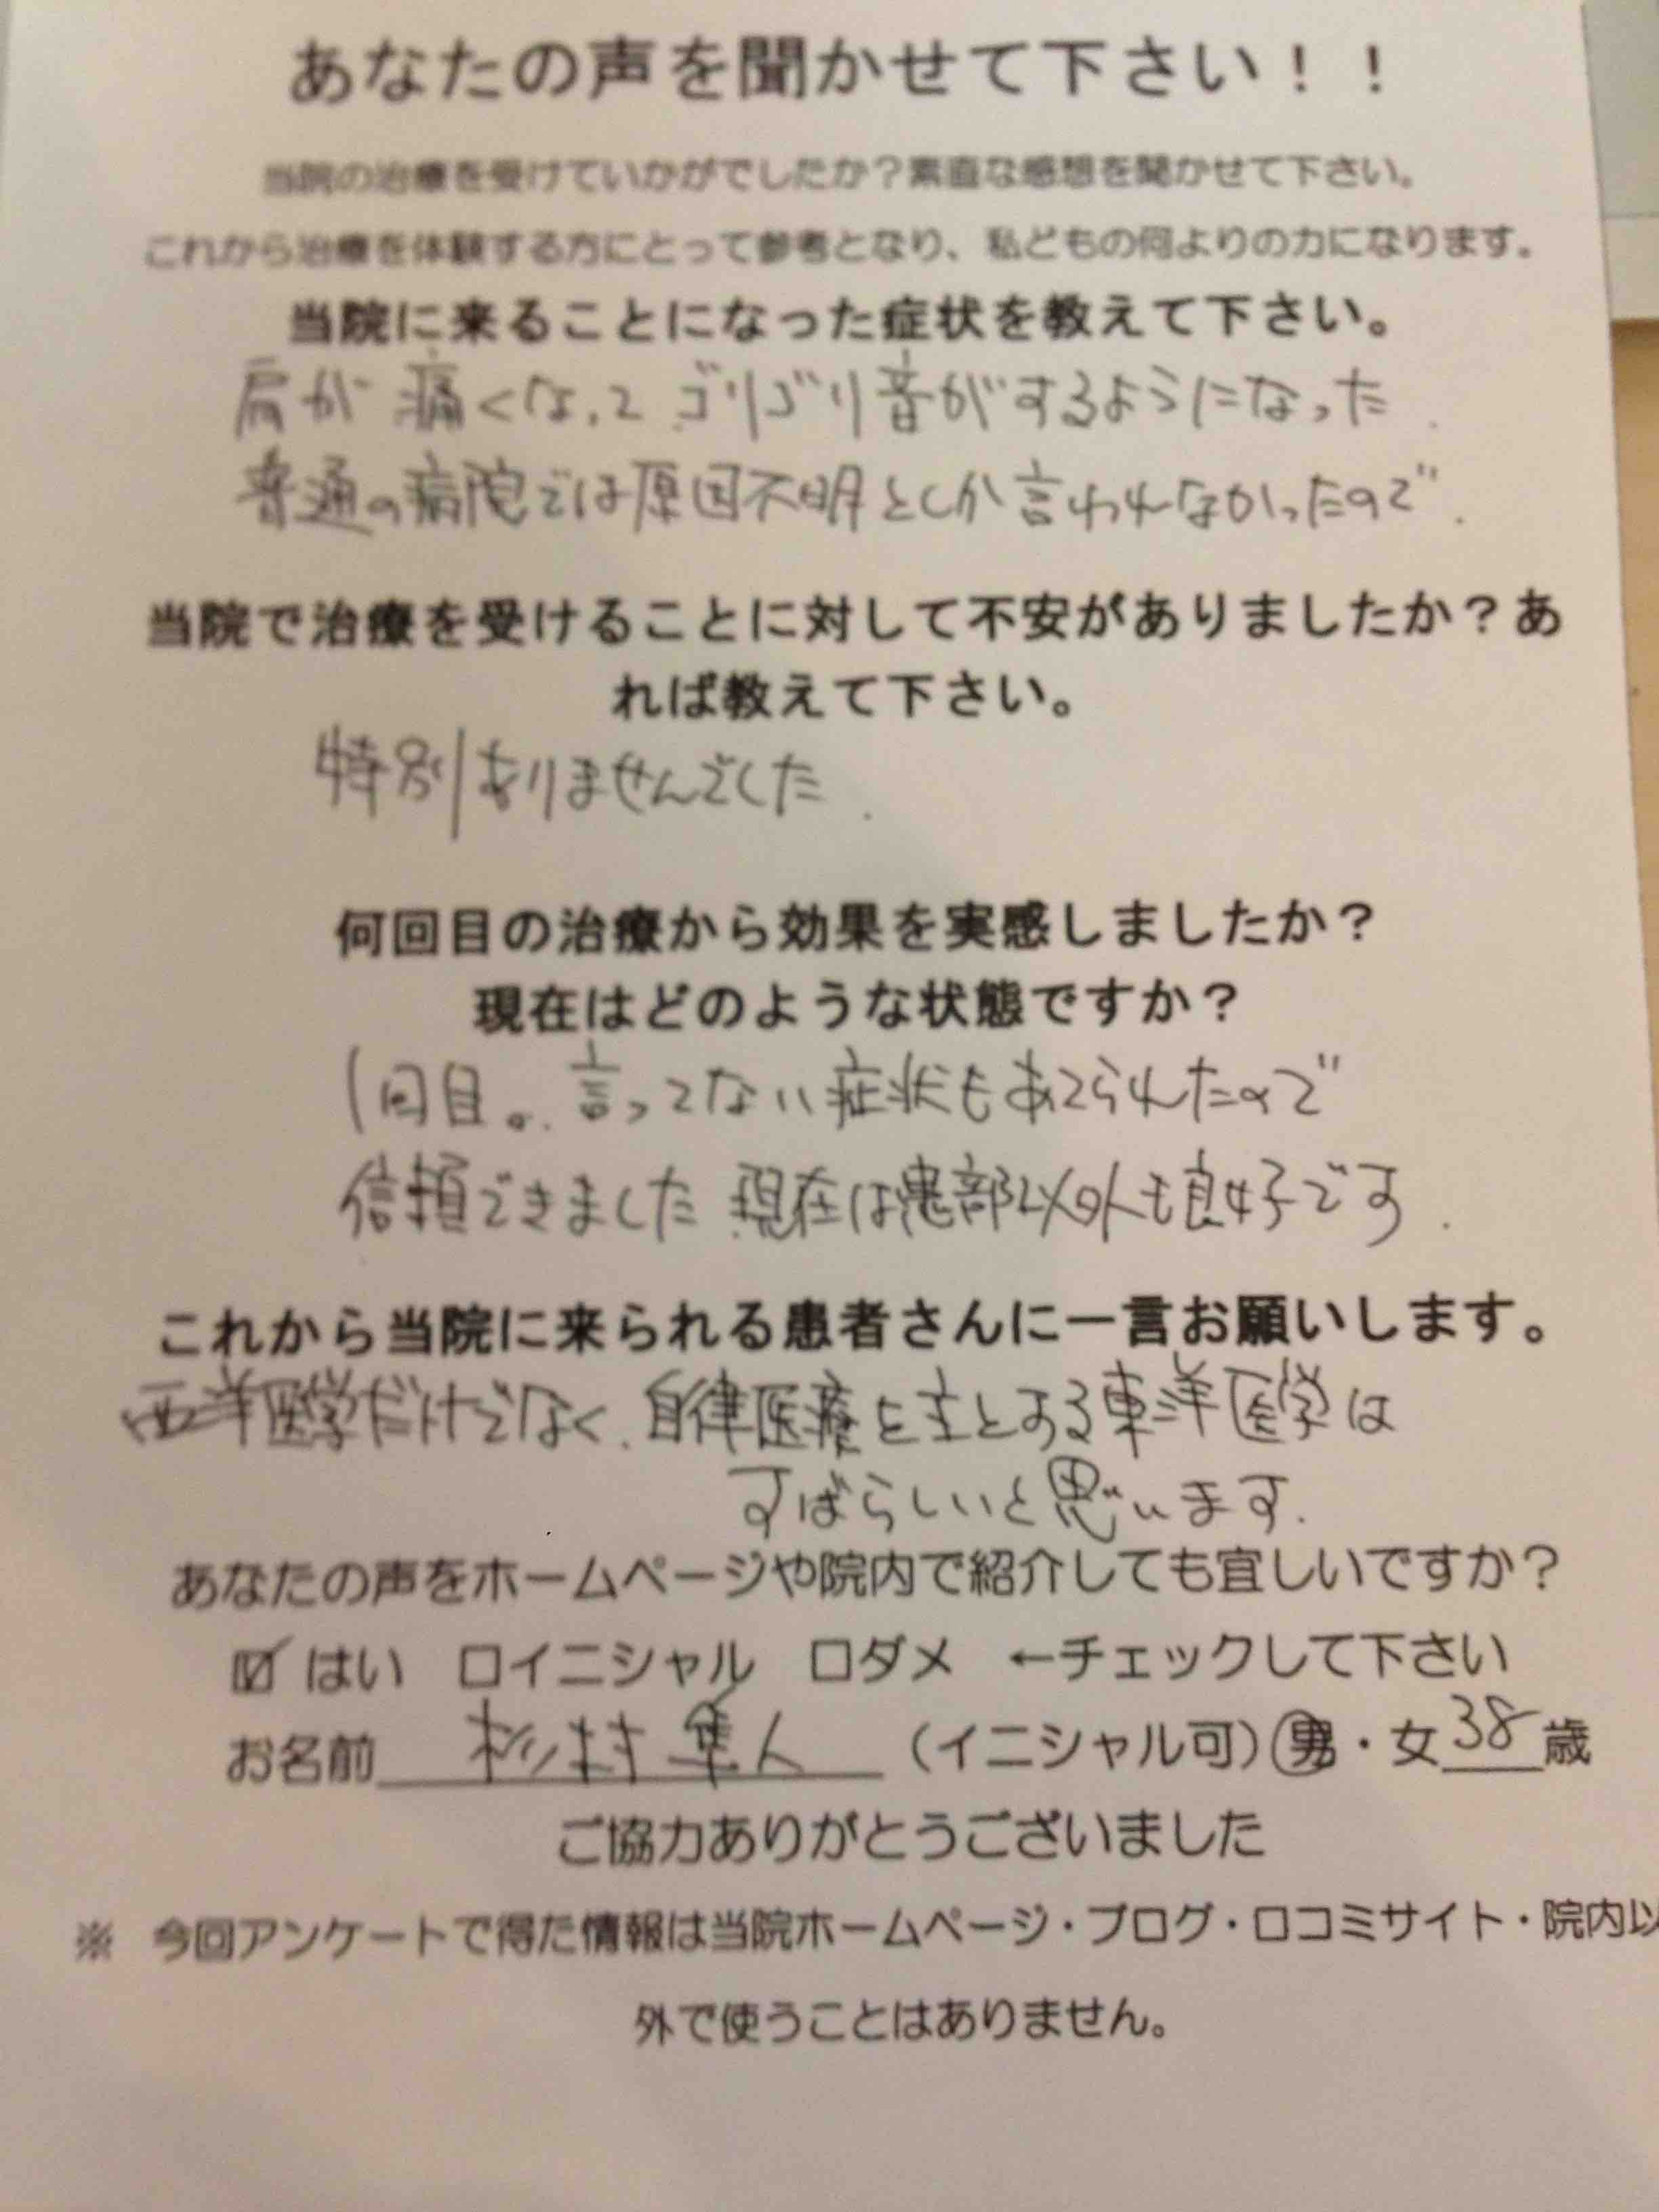 あなたの声を聞かせて下さい！！
当院の治療を受けていかがでしたか？素直な感想を聞かせて下さい。
これから治療を体験する方にとって参考となり、私どもの何よりの力になります。
当院に来ることになった症状を教えて下さい。
肩が痛くなって ゴリゴリ音がするようになった.
普通の病院では原因不明としか言われなかったので.
当院で治療を受けることに対して不安がありましたか？あ
れば教えて下さい。
特別ありませんでした.
何回目の治療から効果を実感しましたか？
現在はどのような状態ですか？
1回目。言ってない症状もあてられたので
信頼できました 現在は患部以外も良好です.
これから当院に来られる患者さんに一言お願いします。
西洋医学だけでなく、自律医療を主とする東洋医学は
すばらしいと思います.
あなたの声をホームページや院内で紹介しても宜しいですか？
☑はい □イニシャル □ダメ ←チェックして下さい
お名前 杉村 隼人 （イニシャル可）男・女 38 歳
ご協力ありがとうございました
※ 今回アンケートで得た情報は当院ホームページ・ブログ・口コミサイト・院内以
外で使うことはありません。